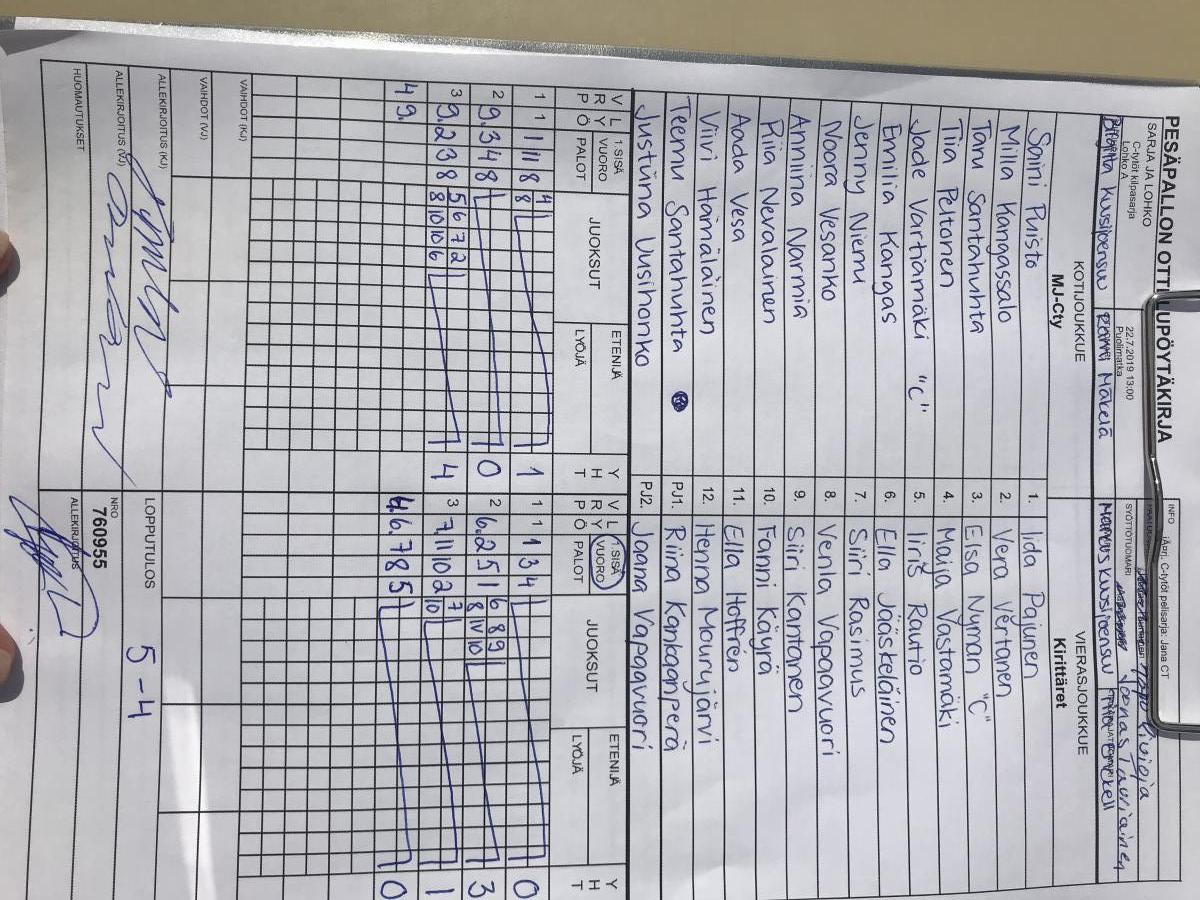 PESÄPALLON OTTELUPÖYTÄKIRJA
SARJA JA LOHKO
C-tytöt kilpasarja
Lohko A
22.7.2019 13:00
Puolimatka
INFO jApri, C-tytöt pelisarja: Jana CT
SYÖTTÖTUOMARI
Joonas Lauriainen
Kuusipensuu Rami Mäkelä
Markus Kuusipensuu
KOTIJOUKKUE VIERASJOUKKUE
MJ-Cty Kirittäret
Saini Puisto 1. Iida Pajunen
Milla Kangassalo 2. Vera Vertanen
Taru Santahuhta 3. Elsa Nyman "C"
Tiia Peltonen 4. Maija Vastamäki
Jade Vartiamäki "C" 5. Iiris Rautio
Emilia Kangas 6. Ella Jääskeläinen
Jenny Niemi 7. Siiri Rasimus
Noora Vesanko 8. Venla Vapaavuori
Anniina Narmia 9. Siiri Kantanen
Riia Nevalainen 10. Fanni Käyrä
Aada Vesa 11. Ella Hoffrén
Viivi Hämäläinen 12. Henna Mourujärvi
Teemu Santahuhta PJ1. Riina Kankaanperä
Justiina Uusihonko PJ2. Jaana Vapaavuori
V L 1.SISÄ JUOKSUT ETENIJÄ Y V L 1.SISÄ JUOKSUT ETENIJÄ Y
R Y VUORO H R Y VUORO H
P Ö PALOT LYÖJÄ T P Ö PALOT LYÖJÄ T
1 1 1 11 8 4 8 1 1 1 1 3 4 0
2 9. 3 4 8 0 2 6. 2 5 1 6 8 9 8 11 10 3
3 9. 2 3 8 5 6 7 2 8 10 10 6 4 3 7. 11 10 2 7 10 1
4 9. 4. 6. 7 8 5 0
VAIHDOT (KJ)
VAIHDOT (VJ)
ALLEKIRJOITUS (KJ) LOPPUTULOS 5-4
ALLEKIRJOITUS (VJ) NRO 760955
HUOMAUTUKSET ALLEKIRJOITUS